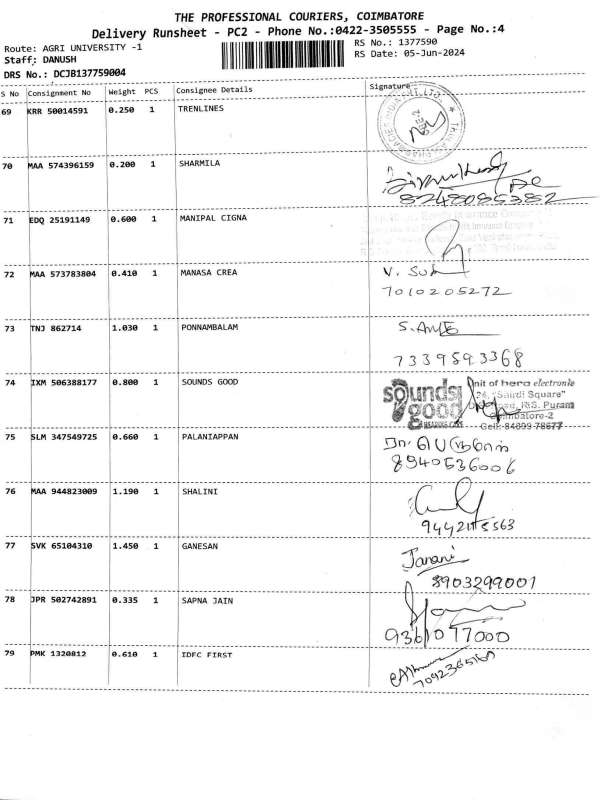 THE PROFESSIONAL COURIERS, COIMBATORE
Delivery Runsheet - PC2 - Phone No.:0422-3505555 - Page No.:4
Route: AGRI UNIVERSITY -1
RS No.: 1377590
Staff: DANUSH
RS Date: 05-Jun-2024
DRS No.: DCJB137759004
S No Consignment No Weight PCS Consignee Details Signature
69 KRR 50014591 0.250 1 TRENLINES
70 MAA 574396159 0.200 1 SHARMILA
8248085382
71 EDQ 25191149 0.600 1 MANIPAL CIGNA
72 MAA 573783804 0.410 1 MANASA CREA
V. Su
7010205272
73 TNJ 862714 1.030 1 PONNAMBALAM
7339593368
74 IXM 506388177 0.800 1 SOUNDS GOOD
sounds good
unit of hera electronic
24, "Saudi Square"
R.S. Puram
Coimbatore-2
Cell: 84899 78677
75 SLM 347549725 0.660 1 PALANIAPPAN
8940536006
76 MAA 944823009 1.190 1 SHALINI
77 SVK 65104310 1.450 1 GANESAN
Janani
8903299001
78 JPR 502742891 0.335 1 SAPNA JAIN
9361077000
79 PMK 1320812 0.610 1 IDFC FIRST